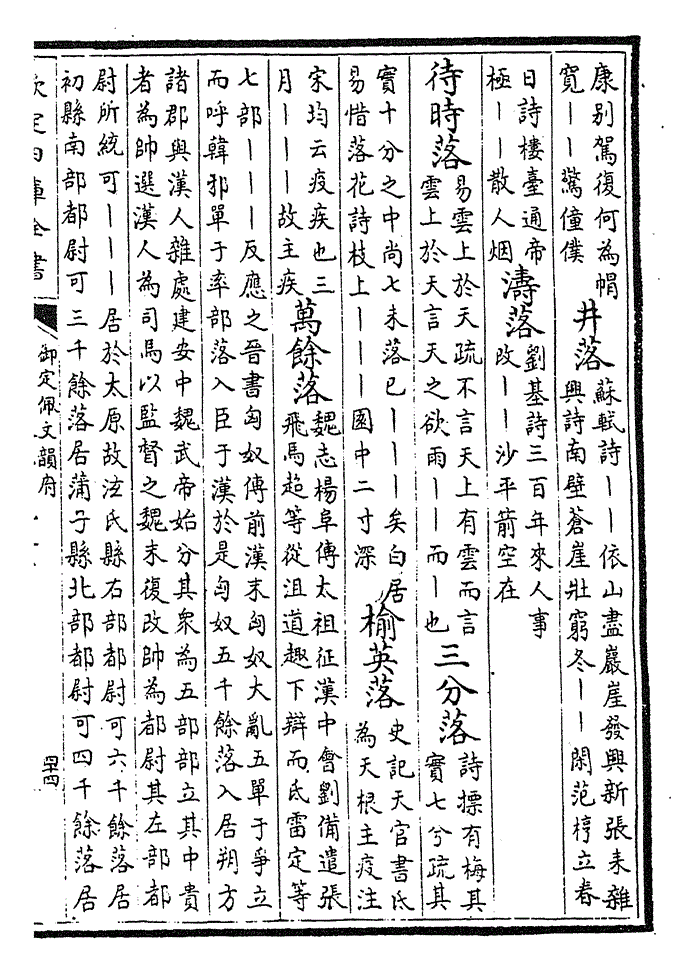 康别駕復何為帽
寛丨丨驚僮僕
井落
蘇軾詩丨丨依山盡巖崖發興新張耒雜
興詩南壁蒼崖壯窮冬丨丨閑范梈立春
日詩樓臺通帝
極丨丨散人烟
濤落
劉基詩三百年來人事
改丨丨沙平箭空在
待時落
易雲上於天疏不言天上有雲而言
雲上於天言天之欲雨丨丨而丨也
三分落
詩摽有梅其
實七兮疏其
實十分之中尚七未落已丨丨丨矣白居
易惜落花詩枝上丨丨丨園中二寸深
榆莢落
史記天官書氐
為天根主疫注
宋均云疫疾也三
月丨丨丨故主疾
萬餘落
魏志楊阜傳太祖征漢中會劉備遣張
飛馬超等從沮道趣下辯而氐雷定等
七部丨丨丨反應之晉書匈奴傳前漢末匈奴大亂五單于爭立
而呼韓邪單于率部落入臣于漢於是匈奴五千餘落入居朔方
諸郡與漢人雜處建安中魏武帝始分其衆為五部部立其中貴
者為帥選漢人為司馬以監督之魏末復改帥為都尉其左部都
尉所統可丨丨丨居於太原故泫氏縣右部都尉可六千餘落居
初縣南部都尉可三千餘落居蒲子縣北部都尉可四千餘落居
欽定四庫全書
御定佩文韻府